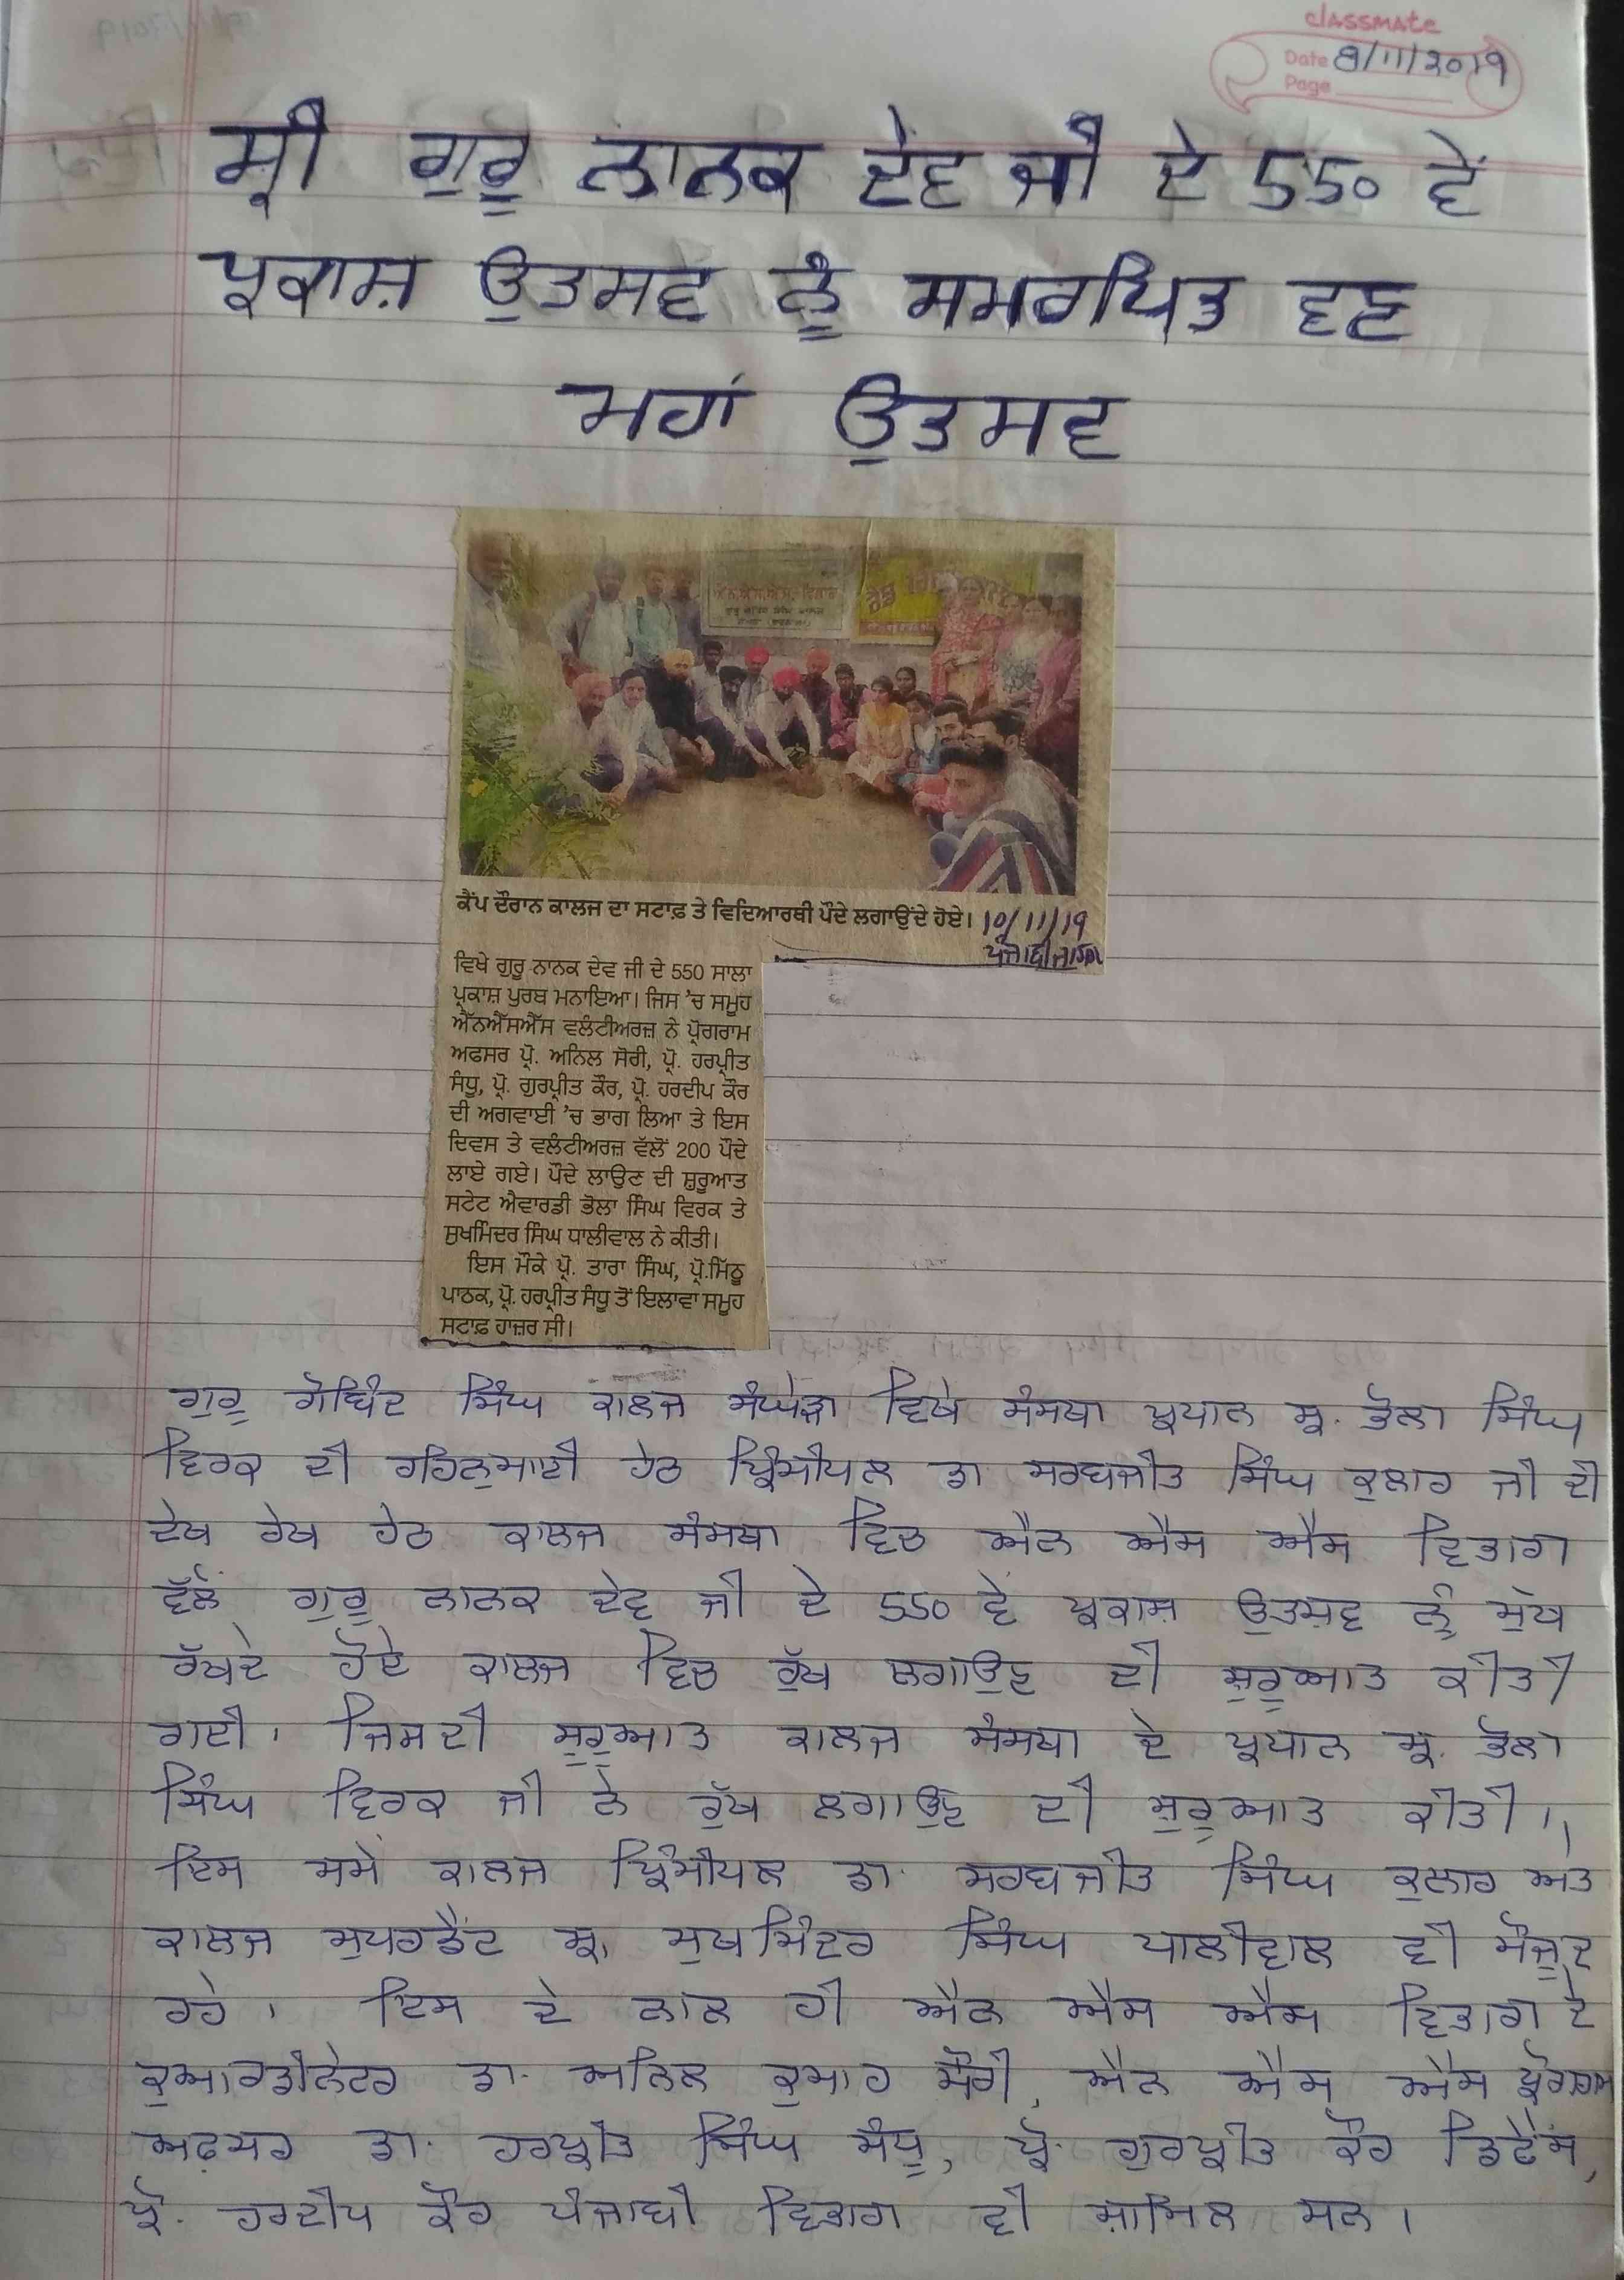 classmate
Date 8/11/2019
Page
ਸ੍ਰੀ ਗੁਰੂ ਨਾਨਕ ਦੇਵ ਜੀ ਦੇ 550 ਵੇਂ
ਪ੍ਰਕਾਸ਼ ਉਤਸਵ ਨੂੰ ਸਮਰਪਿਤ ਵਣ
ਮਹਾਂ ਉਤਸਵ
ਐਨ.ਐਸ.ਐਸ. ਵਿਭਾਗ
ਕੈਂਪ ਦੌਰਾਨ ਕਾਲਜ ਦਾ ਸਟਾਫ਼ ਤੇ ਵਿਦਿਆਰਥੀ ਪੌਦੇ ਲਗਾਉਂਦੇ ਹੋਏ। 10/11/19
ਪੰਜਾਬੀ ਜਾਗਰਣ
ਵਿਖੇ ਗੁਰੂ ਨਾਨਕ ਦੇਵ ਜੀ ਦੇ 550 ਸਾਲਾ
ਪ੍ਰਕਾਸ਼ ਪੁਰਬ ਮਨਾਇਆ। ਜਿਸ 'ਚ ਸਮੂਹ
ਐੱਨਐੱਸਐੱਸ ਵਲੰਟੀਅਰਜ਼ ਨੇ ਪ੍ਰੋਗਰਾਮ
ਅਫਸਰ ਪ੍ਰੋ. ਅਨਿਲ ਸੋਰੀ, ਪ੍ਰੋ. ਹਰਪ੍ਰੀਤ
ਸੰਧੂ, ਪ੍ਰੋ. ਗੁਰਪ੍ਰੀਤ ਕੌਰ, ਪ੍ਰੋ. ਹਰਦੀਪ ਕੌਰ
ਦੀ ਅਗਵਾਈ 'ਚ ਭਾਗ ਲਿਆ ਤੇ ਇਸ
ਦਿਵਸ ਤੇ ਵਲੰਟੀਅਰਜ਼ ਵੱਲੋਂ 200 ਪੌਦੇ
ਲਾਏ ਗਏ। ਪੌਦੇ ਲਾਉਣ ਦੀ ਸ਼ੁਰੂਆਤ
ਸਟੇਟ ਐਵਾਰਡੀ ਭੋਲਾ ਸਿੰਘ ਵਿਰਕ ਤੇ
ਸੁਖਮਿੰਦਰ ਸਿੰਘ ਧਾਲੀਵਾਲ ਨੇ ਕੀਤੀ।
ਇਸ ਮੌਕੇ ਪ੍ਰੋ. ਤਾਰਾ ਸਿੰਘ, ਪ੍ਰੋ.ਮਿੱਠੂ
ਪਾਠਕ, ਪ੍ਰੋ. ਹਰਪ੍ਰੀਤ ਸੰਧੂ ਤੋਂ ਇਲਾਵਾ ਸਮੂਹ
ਸਟਾਫ਼ ਹਾਜ਼ਰ ਸੀ।
ਗੁਰੂ ਗੋਬਿੰਦ ਸਿੰਘ ਕਾਲਜ ਸੰਘੇੜਾ ਵਿਖੇ ਸੰਸਥਾ ਪ੍ਰਧਾਨ ਸ੍ਰ. ਭੋਲਾ ਸਿੰਘ
ਵਿਰਕ ਦੀ ਰਹਿਨੁਮਾਈ ਹੇਠ ਪ੍ਰਿੰਸੀਪਲ ਡਾ ਸਰਬਜੀਤ ਸਿੰਘ ਕੁਲਾਰ ਜੀ ਦੀ
ਦੇਖ ਰੇਖ ਹੇਠ ਕਾਲਜ ਸੰਸਥਾ ਵਿਚ ਐਨ ਐਸ ਐਸ ਵਿਭਾਗ
ਵੱਲੋਂ ਗੁਰੂ ਨਾਨਕ ਦੇਵ ਜੀ ਦੇ 550 ਵੇਂ ਪ੍ਰਕਾਸ਼ ਉਤਸ਼ਵ ਨੂੰ ਮੁੱਖ
ਰੱਖਦੇ ਹੋਏ ਕਾਲਜ ਵਿਚ ਰੁੱਖ ਲਗਾਉਣ ਦੀ ਸ਼ੁਰੂਆਤ ਕੀਤੀ
ਗਈ। ਜਿਸਦੀ ਸ਼ੁਰੂਆਤ ਕਾਲਜ ਸੰਸਥਾ ਦੇ ਪ੍ਰਧਾਨ ਸ੍ਰ. ਭੋਲਾ
ਸਿੰਘ ਵਿਰਕ ਜੀ ਨੇ ਰੁੱਖ ਲਗਾਉਣ ਦੀ ਸ਼ੁਰੂਆਤ ਕੀਤੀ।
ਇਸ ਸਮੇਂ ਕਾਲਜ ਪ੍ਰਿੰਸੀਪਲ ਡਾ. ਸਰਬਜੀਤ ਸਿੰਘ ਕੁਲਾਰ ਅਤੇ
ਕਾਲਜ ਸੁਪਰਡੈਂਟ ਸ੍ਰ. ਸੁਖਮਿੰਦਰ ਸਿੰਘ ਧਾਲੀਵਾਲ ਵੀ ਮੌਜੂਦ
ਰਹੇ। ਇਸ ਦੇ ਨਾਲ ਹੀ ਐਨ ਐਸ ਐਸ ਵਿਭਾਗ ਦੇ
ਕੁਆਰਡੀਨੇਟਰ ਡਾ. ਅਨਿਲ ਕੁਮਾਰ ਸੋਰੀ, ਐਨ ਐਸ ਐਸ ਪ੍ਰੋਗਰਾਮ
ਅਫ਼ਸਰ ਡਾ. ਹਰਪ੍ਰੀਤ ਸਿੰਘ ਸੰਧੂ, ਪ੍ਰੋ. ਗੁਰਪ੍ਰੀਤ ਕੌਰ
ਪ੍ਰੋ. ਹਰਦੀਪ ਕੌਰ ਪੰਜਾਬੀ ਵਿਭਾਗ ਵੀ ਸ਼ਾਮਿਲ ਸਨ।